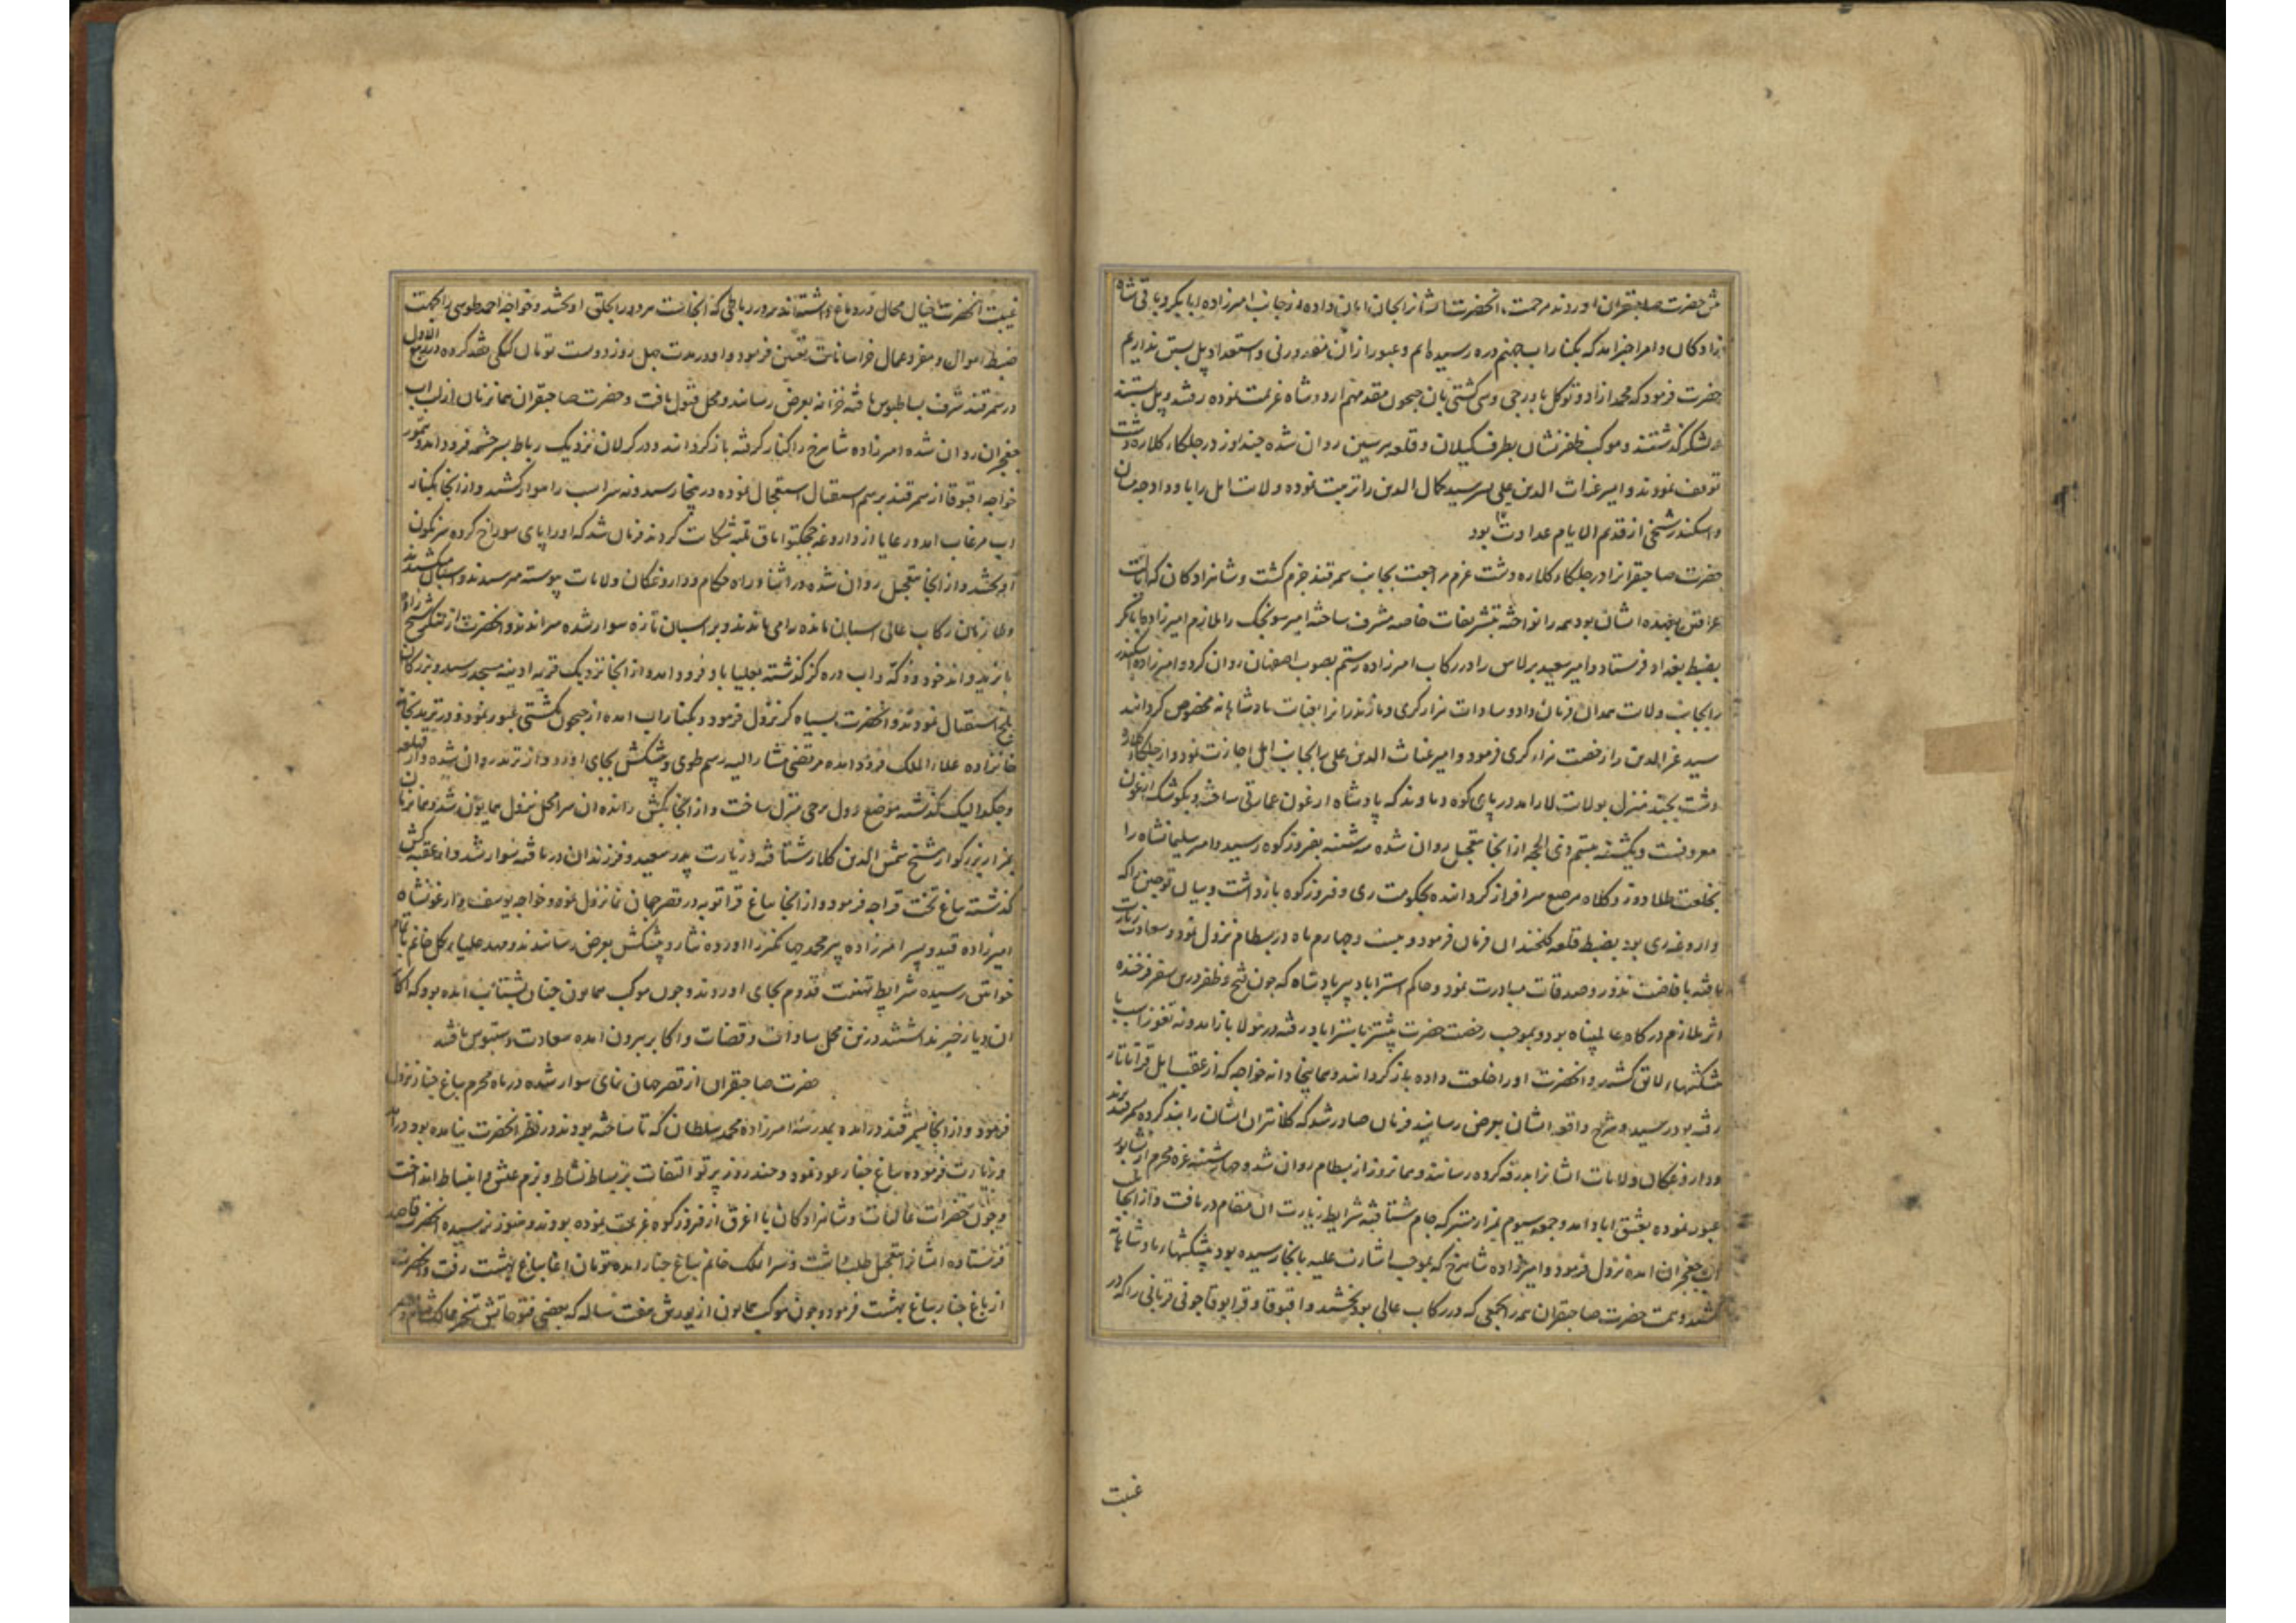 پیش حضرت صاحبقران اوردند مرحمت انحضرت ایشانرا بجان امان داده از جانب امیرزاده ابابکر و باقی شاه
زادکان و امرا خبر امد که بکنار اب جهنم دره رسیده ایم و عبور از ان متعذر و استعداد پل بستن نداریم
حضرت فرمود که محمد ازاد و توکل باورجی و سی کشتی بان جیحون مقدمهم اردو شاه عزیمت نموده رفتند و پل بستند
و لشکر گذشتند و موکب ظفر نشان بطرف کیلان و قلعه هرسین روان شده چند روز در جلکاء کلاره دشت
توقف نمودند و امیر غیاث الدین علی پسر سید کمال الدین را تربیت نموده ولایت امل را باو داد چه میان
و اسکندر شیخی از قدیم الایام عداوت بود
حضرت صاحبقران در جلکاء کلاره دشت عزم مراجعت بجانب سمرقند جزم کشت و شاهزادکان که ایالت
عراقین بعهده ایشان بود همه را نواخته بتشریفات خاصه مشرف ساخته امیر سونجک را ملازم امیرزاده ابابکر
بضبط بغداد فرستاد و امیر سعید برلاس را در رکاب امیرزاده رستم بصوب اصفهان روان کرد و امیرزاده اسکندر
را بجانب ولایت همدان فرمان داد و سادات هزار کری و مازندران را بعنایات پادشاهانه مخصوص کردانید
سید عز الدین را رخصت هزار کری فرمود و امیر غیاث الدین علی را بجانب امل اجازت نمود و از جلکاء کلاره
دشت بچند منزل بولایت لار امد در پای کوه دماوند که پادشاه ارغون عمارتی ساخته و بکوشک ارغون
معروفست و یکشنبه بیستم ذی الحجه از انجا بتعجیل روان شده سه شنبه بفیروزکوه رسید و امیر سلیمانشاه را
بخلعت طلا دوز و کلاه مرصع سرافراز کردانیده بحکومت ری و فیروزکوه بازداشت و بیان قوجین را که
داروغه ری بود بضبط قلعه کلخندان فرمان فرمود و بیست و چهارم ماه در بسطام نزول نمود و سعادت زیارت
یافته با فاضت نذور و صدقات مبادرت نمود و حاکم استراباد پیر پادشاه که چون فتح و ظفر درین سفر فرخنده
اثر ملازم درکاه عالم پناه بود و بموجب رخصت حضرت پیشتر باستراباد رفته در نولا باز امد و نه تقوز اسب با
پیشکشهاء لایق کشید و انحضرت او را خلعت داده باز کردانید و همانجا دانه خواجه که از عقب ایل قراتاتار
رفته بود در رسید و شرح واقعه ایشان بعرض رسانید فرمان صادر شد که کلانتران ایشان را بند کرده بسمرقند برند
و داروغکان ولایات ایشانرا بدرقه کرده رسانند و همانروز از بسطام روان شد و چهارشنبه غره محرم از نشابور
عبور نموده بعشق اباد امد و جمعه سیوم بمزار متبرکه جام شتافته شرایط زیارت ان مقام دریافت و از انجا
اب جغجران امده نزول فرمود و امیرزاده شاهرخ که بموجب اشارت علیه بانجا رسیده بود پیشکشهاء پادشاهانه
کشید و همت حضرت صاحبقران همه را بجمعی که در رکاب عالی بود بخشید و اقبوقا و قرابوقا جونی قربانی را که در
غیبت
غیبت انحضرت خیال محال در دماغ داشتند بر در رباطی که انجاست هر دو را بحلق اویختند و خواجه احمد طوسی را بجهت
ضبط اموال و مفرد عمال خراسانات تعیین فرمود و او در مدت چهل روز دویست تومان کبکی نقد کرده در ربیع الاول
در سمرقند شرف بساطبوس یافته خزانه بعرض رسانید و محل قبول یافت و حضرت صاحبقران همانزمان از لب اب
جغجران روان شده امیرزاده شاهرخ را کنار کرفته باز کردانید و در کرلان نزدیک رباط سرچشمه فرود امد و تیمور
خواجه اقبوقا از سمرقند برسم استقبال استعجال نموده در پنجا رسید و نه سر اسب راهوار کشید و از انجا بکنار
اب مرغاب امد و رعایا از داروغه ججکتو اباق تلبه شکایت کردند فرمان شد که او را پای سوراخ کرده سرنکون
اویختند و از انجا بتعجیل روان شده در اثناء راه حکام و داروغکان ولایات پیوسته میرسیدند و اسبان میکشیدند
و ملازمان رکاب عالی اسبان مانده را می ماندند و بر اسبان تازه سوار شده میراندند و انحضرت از لنکر شیخ زاده
بایزید و اندخود و دکه و اب دره کز گذشته بعلیاباد فرود امد و از انجا نزدیک قریه ادینه مسجد رسید و بزرکان
بلخ استقبال نمودند و انحضرت بسیاه کرد نزول فرمود و بکنار اب امده از جیحون بکشتی عبور نمود و در ترمد بخانه
خانزاده علاء الملک فرود امده مرتضی مشار الیه رسم طوی و پیشکش بجای اورد و از ترمد روان شده و از قهلغه
و جکدالیک گذشته موضع دول برجی منزل ساخت و از انجا بکش رانده ان سرا محل نزول همایون شد و همانزمان
بمزار بزرکوار شیخ شمس الدین کلار شتافته و زیارت پدر سعید و فرزندان دریافته سوار شد و از عقبه کش
گذشته بباغ تخت قراجه فرمود و از انجا بباغ قراتوبه در قصر جهان نما نزول نمود و خواجه یوسف و ارغونشاه
امیرزاده قیدو پسر امیرزاده پیر محمد جهانکیر را اورده نثار و پیشکش بعرض رسانیدند و مهد علیا توکل خانم با تمام
خواتین رسیده شرایط تهنیت قدوم بجای اوردند و چون موکب همایون چنان بشتاب امده بود که اکابر
ان دیار خبر نداشتند درین محل سادات و قضات و اکابر بیرون امده سعادت دستبوس یافتند
حضرت صاحبقران از قصر جهان نمای سوار شده در ماه محرم بباغ چنار نزول
فرمود و از انجا بسمرقند درامده بمدرسه امیرزاده محمد سلطان که تا ساخته بودند در نظر انحضرت نیامده بود درامد
و زیارت فرموده بباغ چنار عود نمود و چند روز پرتو التفات بر بساط نشاط و بزم عیش و انبساط انداخت
و چون حضرات عالیات و شاهزادکان با اغرق از فیروزکوه عزیمت نموده بودند و هنوز نرسیده انحضرت قاصد
فرستاده ایشانرا بتعجیل طلب داشت و سرای ملک خانم بباغ چنار امده تومان اغا بباغ بهشت رفت و انحضرت
از باغ چنار بباغ بهشت فرمود و چون موکب همایون از یورش هفت ساله که بعضی فتوحاتش تسخیر ممالک شام و